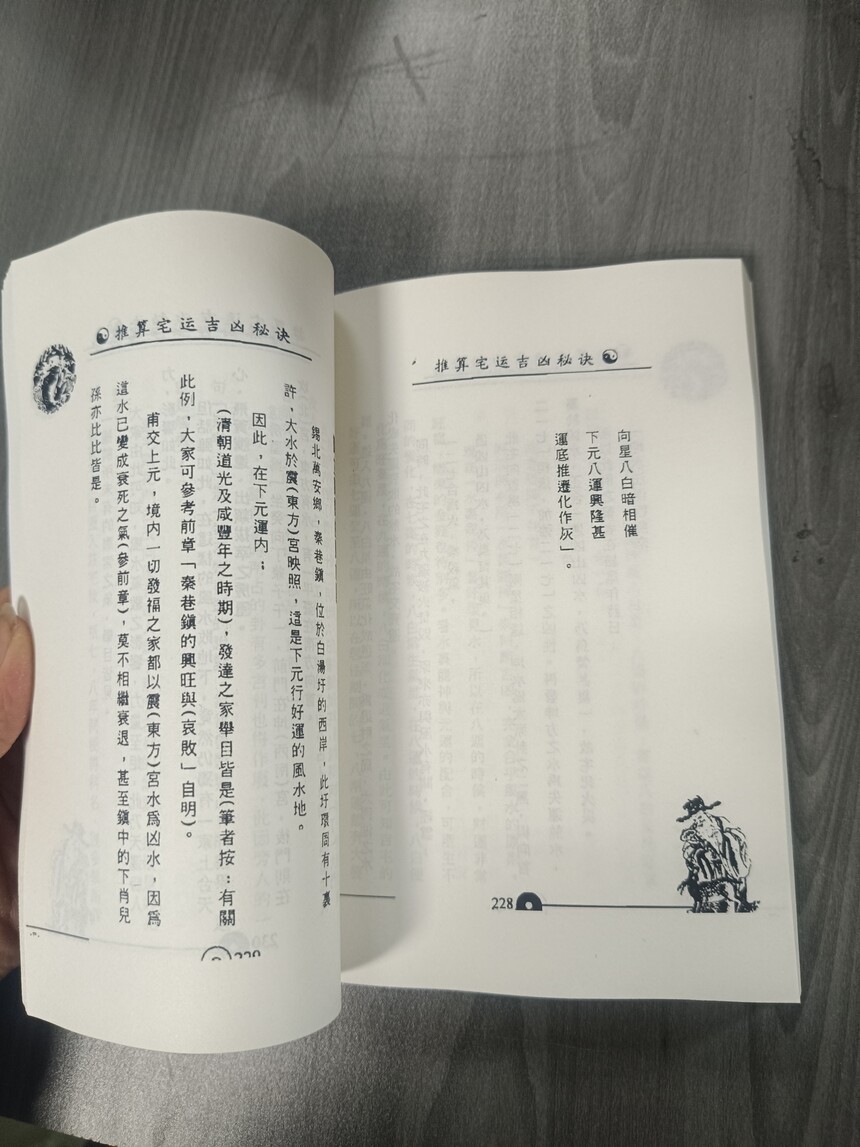 推算宅运吉凶秘诀
向星八白暗相催
下元八運興隆甚
運底推遷化作灰」。
228
推算宅运吉凶秘诀
錫北萬安鄉，秦巷鎮，位於白湯圩的西岸，此圩環周有十裏
許，大水於震(東方)宮映照，這是下元行好運的風水地。
因此，在下元運内；
(清朝道光及咸豐年之時期)，發達之家舉目皆是(筆者按：有關
此例，大家可參考前章「秦巷鎮的興旺與(哀敗」自明)。
甫交上元，境内一切發福之家都以震(東方)宮水爲凶水，因爲
這水已變成衰死之氣(參前章)，莫不相繼衰退，甚至鎮中的下肖兒
孫亦比比皆是。